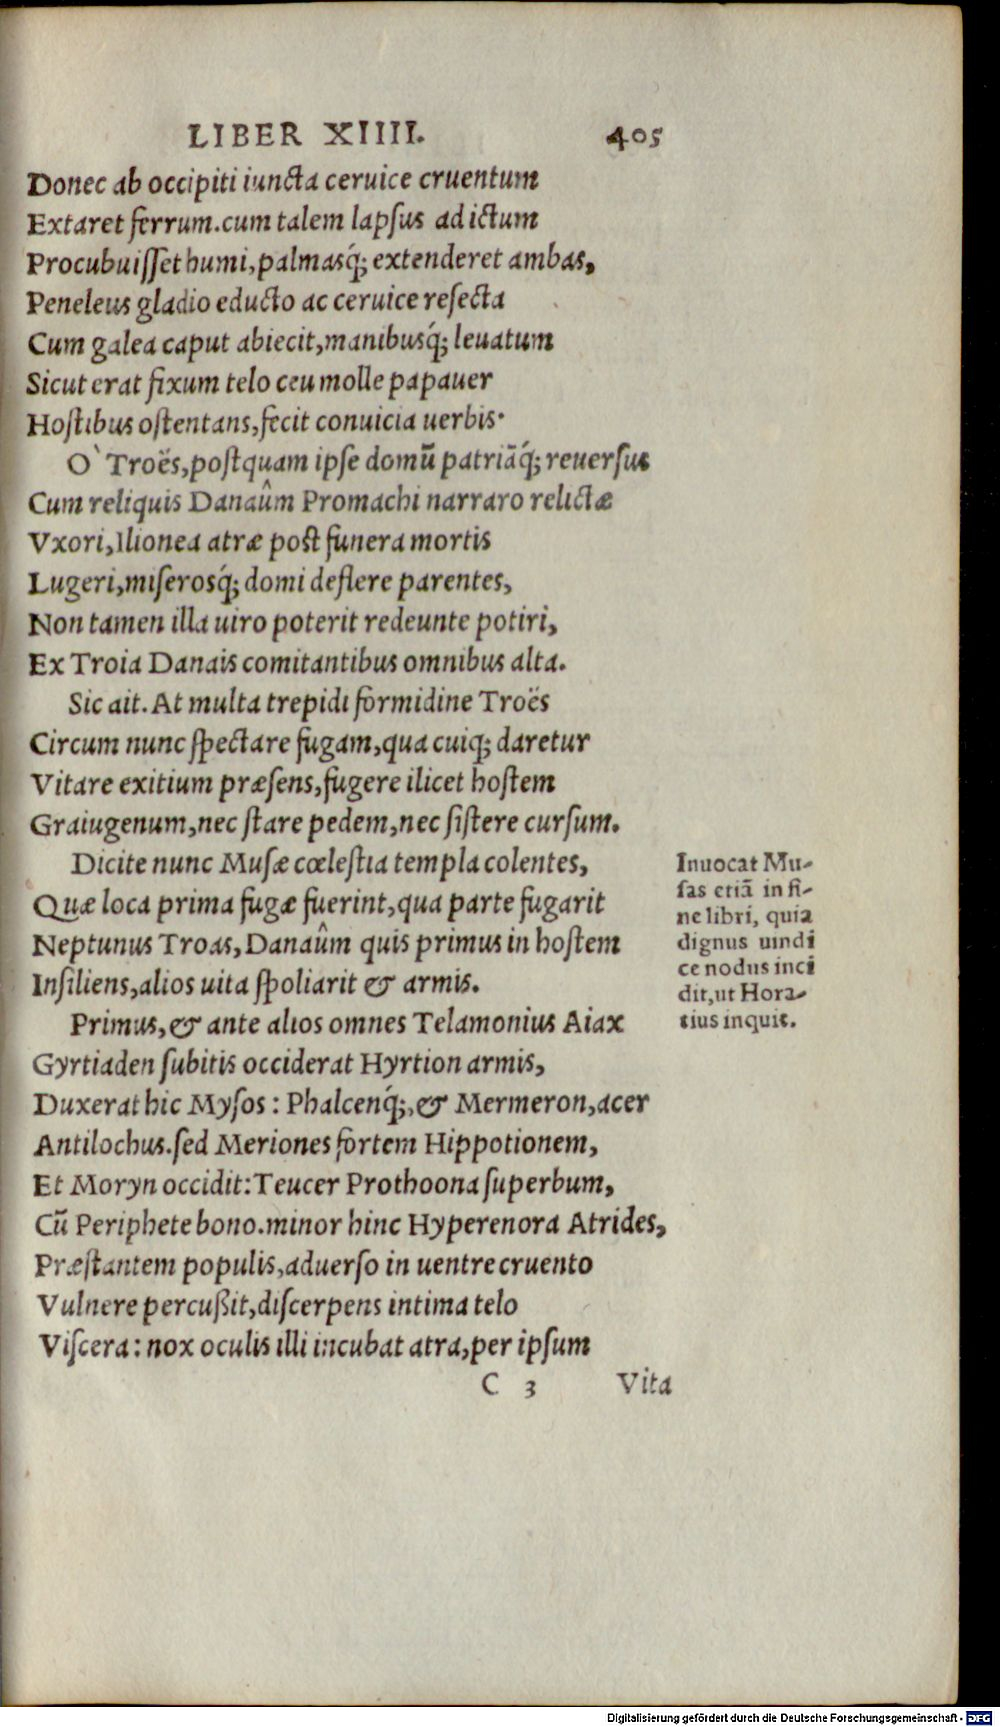 LIBER XIIII. 405
Donec ab occipiti iuncta ceruice cruentum
Extaret ferrum.cum talem lapsus ad ictum
Procubuisset humi,palmasq́; extenderet ambas,
Peneleus gladio educto ac ceruice resecta
Cum galea caput abiecit,manibusq́; leuatum
Sicut erat fixum telo ceu molle papauer
Hostibus ostentans,fecit conuicia uerbis·
O` Troës,postquam ipse domū patriāq́; reuersus
Cum reliquis Danaûm Promachi narraro relictæ
Vxori,Ilionea atræ post funera mortis
Lugeri,miserosq́; domi deflere parentes,
Non tamen illa uiro poterit redeunte potiri,
Ex Troia Danais comitantibus omnibus alta.
Sic ait. At multa trepidi formidine Troës
Circum nunc spectare fugam,qua cuiq; daretur
Vitare exitium præsens,fugere ilicet hostem
Graiugenum,nec stare pedem,nec sistere cursum.
Dicite nunc Musæ cœlestia templa colentes,
Quæ loca prima fugæ fuerint,qua parte fugarit
Neptunus Troas,Danaûm quis primus in hostem
Insiliens,alios uita spoliarit & armis.
Primus,& ante alios omnes Telamonius Aiax
Gyrtiaden subitis occiderat Hyrtion armis,
Duxerat hic Mysos : Phalcenq́;,& Mermeron,acer
Antilochus.sed Meriones fortem Hippotionem,
Et Moryn occidit:Teucer Prothoona superbum,
Cū Periphete bono.minor hinc Hyperenora Atrides,
Præstantem populis,aduerso in uentre cruento
Vulnere percußit,discerpens intima telo
Viscera: nox oculis illi incubat atra,per ipsum
C 3 Vita
Inuocat Mu-
sas etiā in fi-
ne libri, quia
dignus uindi
ce nodus inci
dit,ut Hora-
tius inquit.
Digitalisierung gefördert durch die Deutsche Forschungsgemeinschaft - DFG